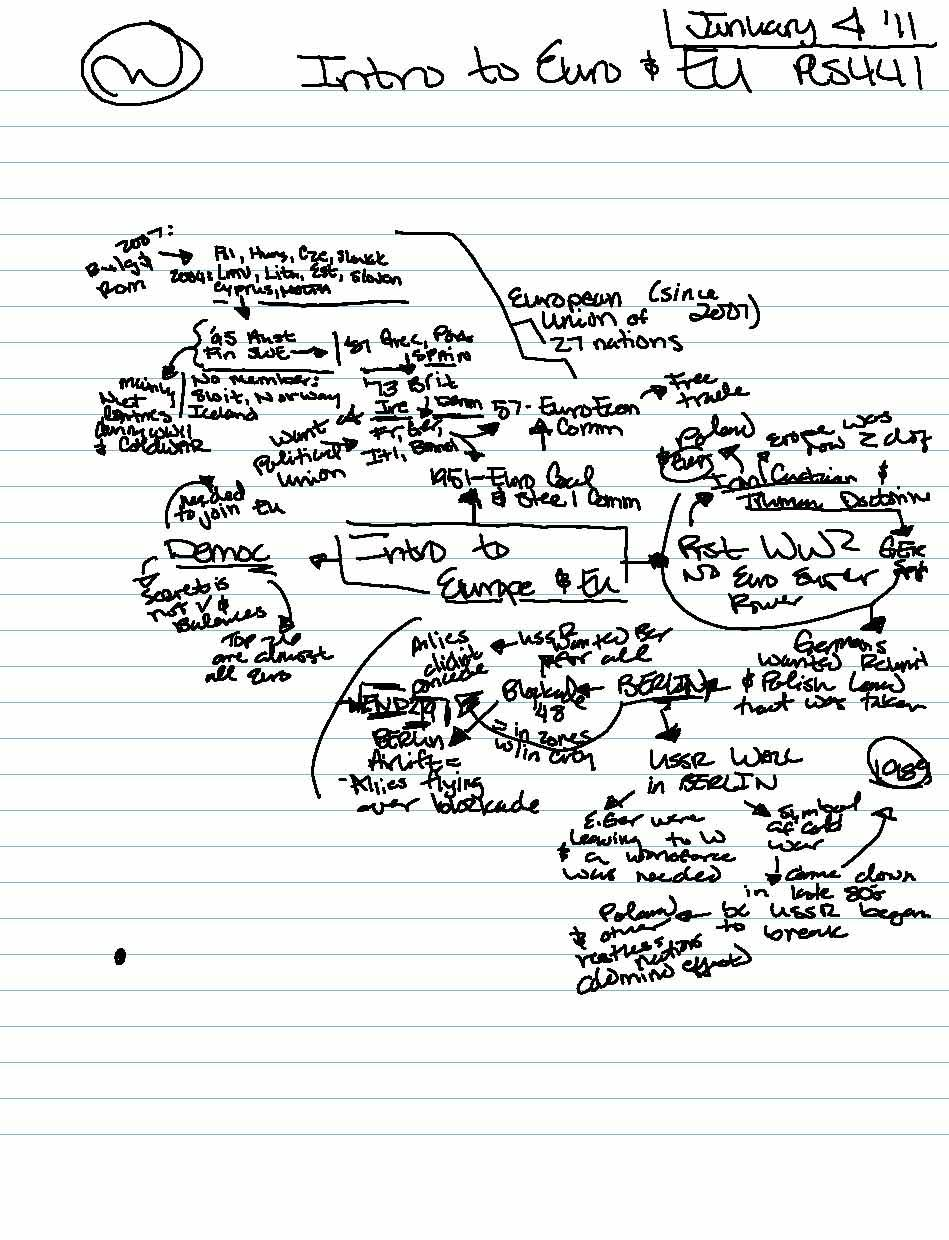 January 4 '11
W
Intro to Euro & EU PS441
2007:
Bulg &
Rom
Pol, Hung, Cze, Slovak
2004: Latv, Lith, Est, Sloven
Cyprus, Malta
European (since
Union of 2007)
27 nations
'95 Aust
Fin SWE
Grec, Port
Spain
Mainly
Neut
Countries
during WWII
& Coldwar
No member:
Swit, Norway
Iceland
'73 Brit
Ire Denm
Fr, Ger,
Itl, Benel
want
Political
union
57 - Euro Econ
Comm
Free
trade
1951 - Euro Coal
& Steel Comm
Poland
& Germ
Europe was
now 2 diff
Iron Curtain &
Truman Doctrine
needed
to join EU
Democ
Secret is
not ✓ &
Balances
Top
are almost
all Euro
Intro to
Europe & EU
Post WW2
No Euro Super
Power
GER
Split
Germans
wanted Reunif
& Polish land
that was taken
Allies
didnt
concede
USSR wanted Ber
for all
Blockade
'48
BERLIN
= in zones
w/in city
BERLIN
Airlift =
- Allies flying
over blockade
USSR Wall
in BERLIN
1989
E.Ger were
leaving to W
& a workforce
was needed
Symbol
of cold
war
came down
in late 80s
bc USSR began
to break
Poland
& other
restless
nations
(domino effect)